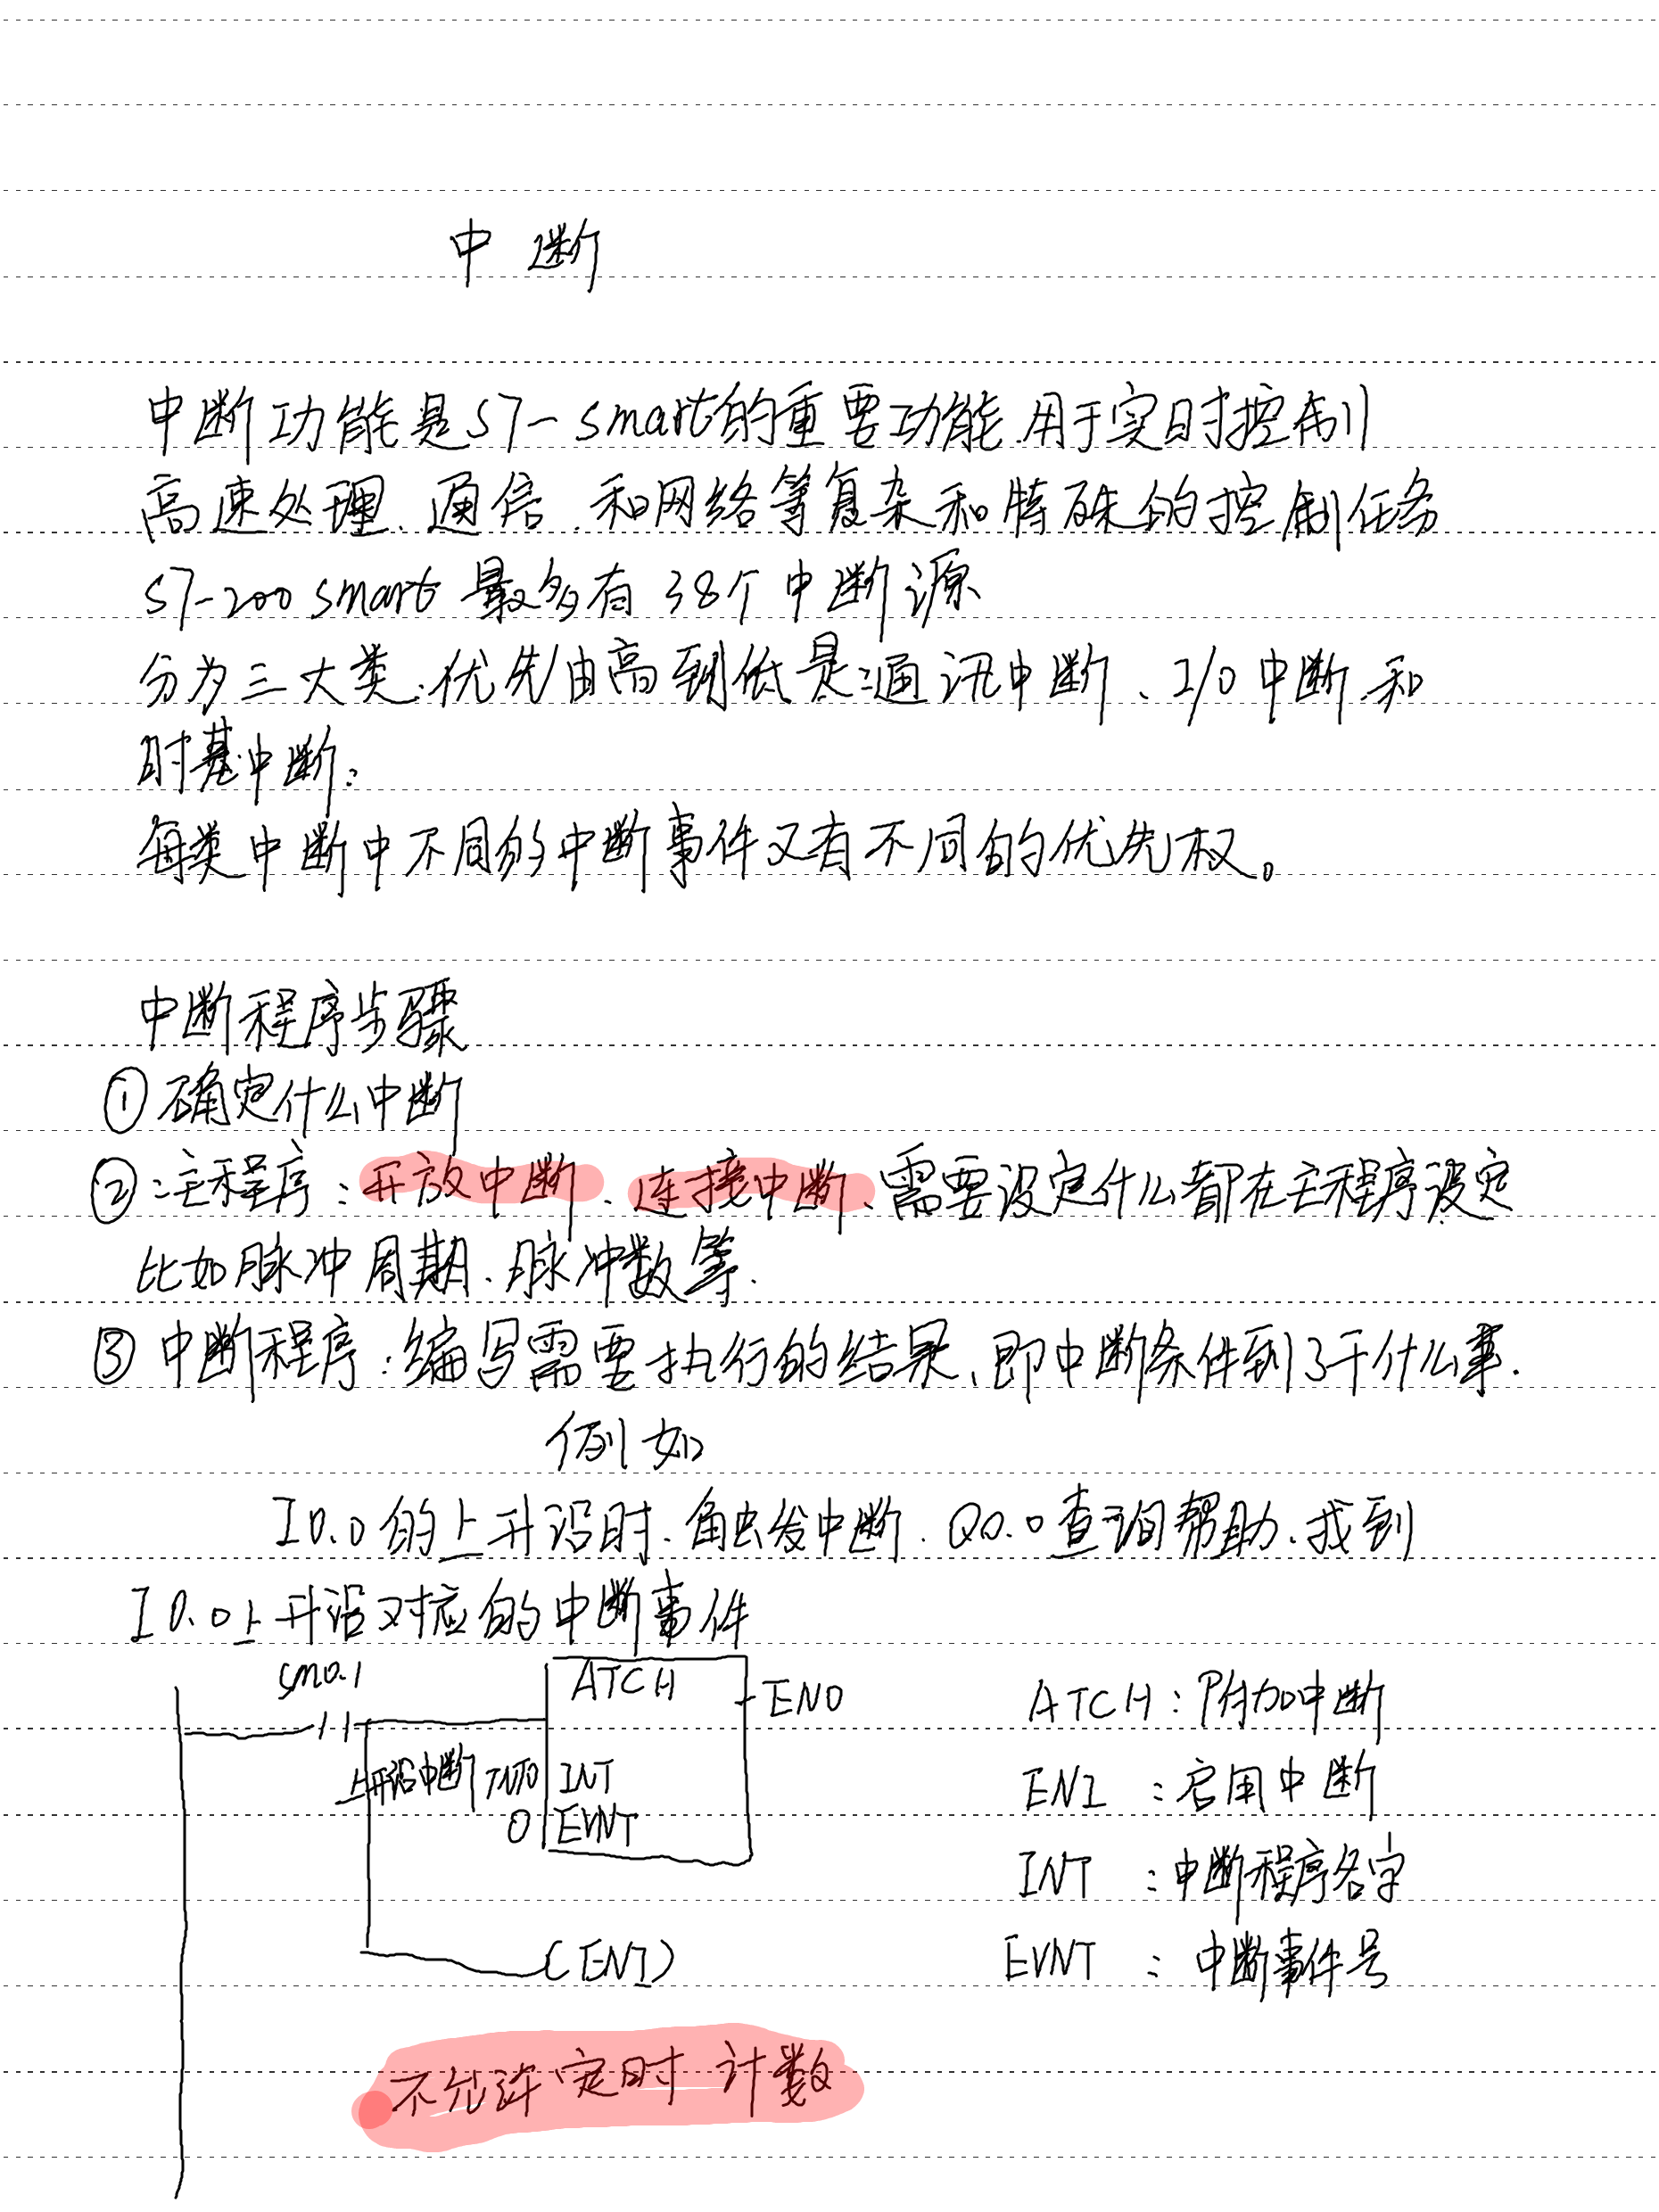 中断
中断功能是S7-smart的重要功能.用于实时控制
高速处理、通信、和网络等复杂和特殊的控制任务
S7-200 smart 最多有 38个中断源
分为三大类.优先由高到低是:通讯中断、I/O中断.和
时基中断.
每类中断中不同的中断事件又有不同的优先权。
中断程序步骤
①确定什么中断
②主程序:开放中断、连接中断、需要设定什么都在主程序设定
比如脉冲周期、脉冲数等.
③中断程序:编写需要执行的结果、即中断条件到了干什么事.
例如
I0.0的上升沿时.触发中断.Q0.0查询帮助.找到
I0.0上升沿对应的中断事件
sm0.1
ATCH
ENO
ATCH:附加中断
上升沿中断 INT0 INT
ENI :启用中断
0 EVNT
INT :中断程序名字
(ENI)
EVNT :中断事件号
不允许定时 计数